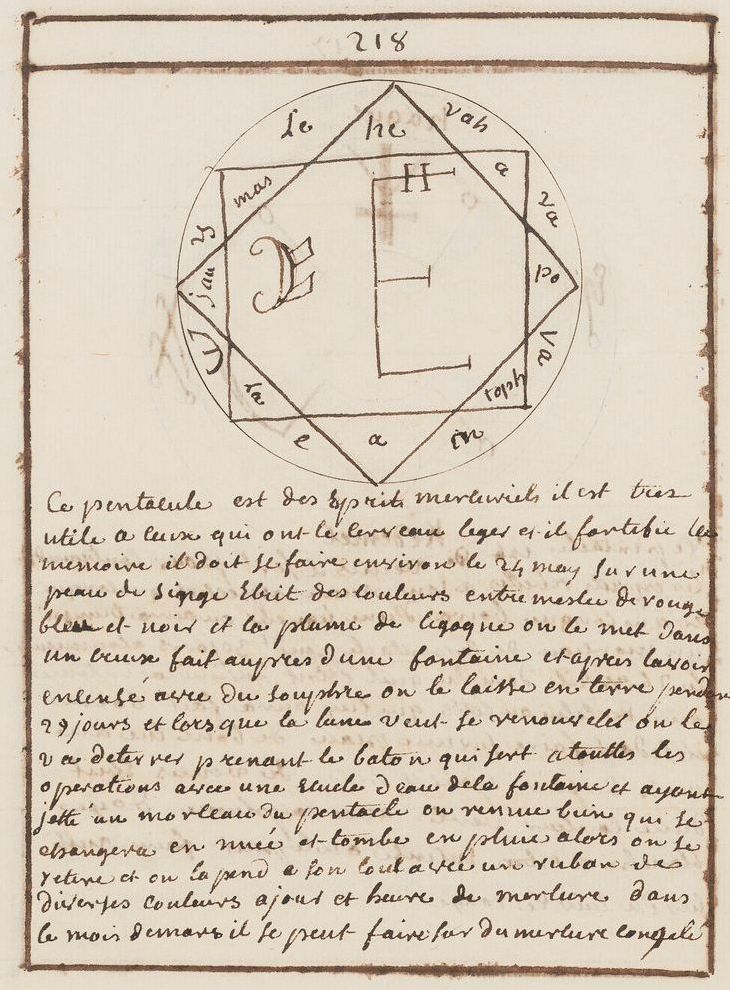 218
le he vah
mas a
za
jau po
va
ra toph
e a in
H
E
Ce pentacule est des Esprits mercuriels il est tres
utile a ceux qui ont le cerveau leger et il fortifie la
memoire il doit se faire environ le 24 may sur une
peau de singe Ebrit des couleurs entremeslee de rouge
bleu et noir et la plume de cigogne on le met dans
un creux fait aupres dune fontaine et apres lavoir
encensé avec du souphre on le laisse en terre pendan
29 jours et lorsque la lune veut se renouveler on le
va deterrer prenant le baton qui sert atouttes les
operations avec une Ecuele deau dela fontaine et ayant
jetté un morceau du pentacle on remue bien qui se
changera en nuée et tombe en pluie alors on se
retire et on la pend a son coul avec un ruban de
diverses couleurs a jour et heure de mercure dans
le mois demars il se peut faire sur du mercure congelé